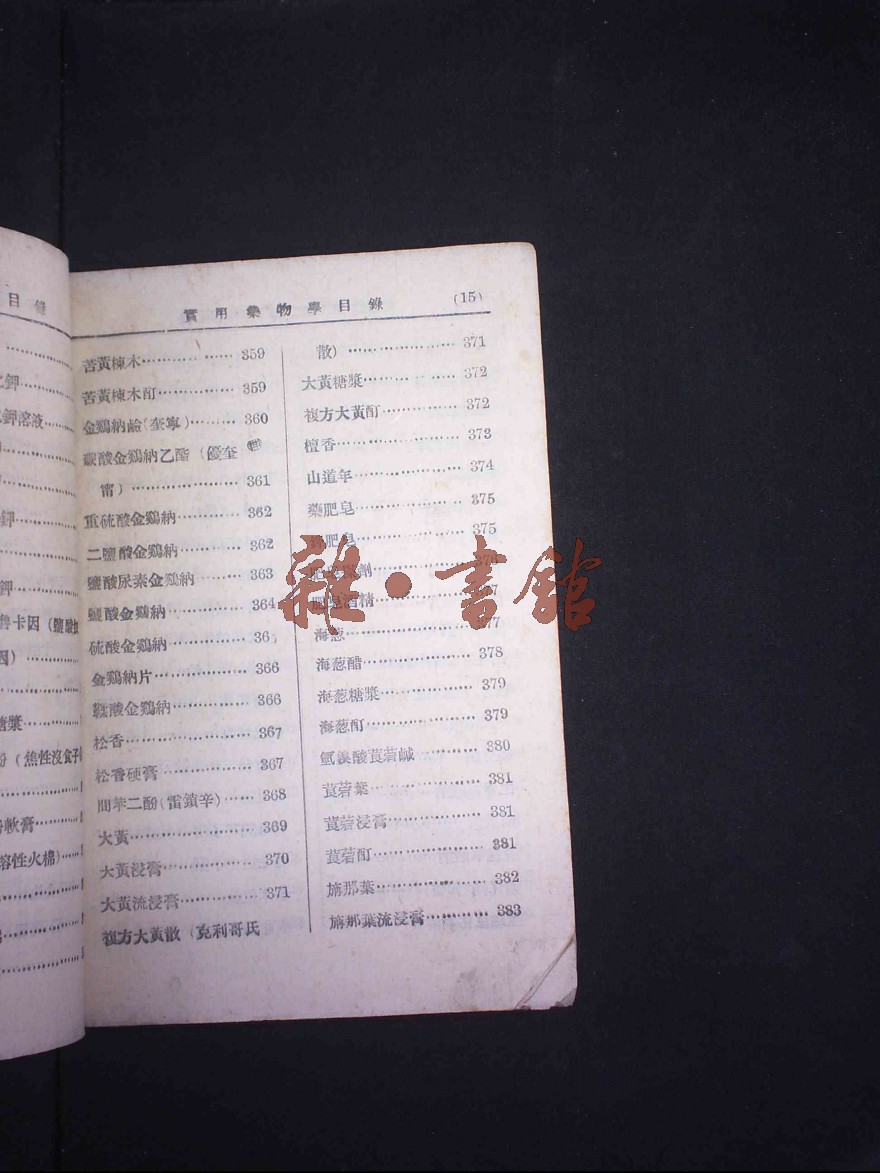 目錄
鉀
鉀溶液
鉀
鉀
魯卡因（鹽酸
因）
糖漿
（焦性沒食子
軟膏
溶性火棉）
實用藥物學目錄 (15)
苦黃楝木 359
苦黃楝木酊 359
金鷄納鹼（奎寧） 360
碳酸金鷄納乙酯（優奎
甯） 361
重硫酸金鷄納 362
二鹽酸金鷄納 362
鹽酸尿素金鷄納 363
鹽酸金鷄納 364
硫酸金鷄納 36
金鷄納片 366
鞣酸金鷄納 366
松香 367
松香硬膏 367
間苯二酚（雷鎖辛） 368
大黃 369
大黃浸膏 370
大黃流浸膏 371
複方大黃散（克利哥氏
散） 371
大黃糖漿 372
複方大黃酊 372
檀香 373
山道年 374
藥肥皂 375
肥皂 375
劑 376
肥皂酒精 377
海葱 377
海葱醋 378
海葱糖漿 379
海葱酊 379
氫溴酸莨菪鹼 380
莨菪葉 381
莨菪浸膏 381
莨菪酊 381
旃那葉 382
旃那葉流浸膏 383
雜·書館